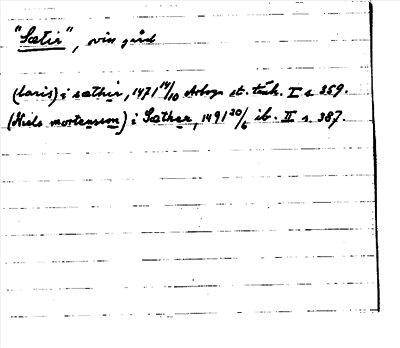 "Sætir", viss gård
(laris) i sæthir, 1471 14/10 Arboga st. tänk. I s. 359.
(Niels mortensson) i Sæther, 1491 20/6 ib. II s. 387.